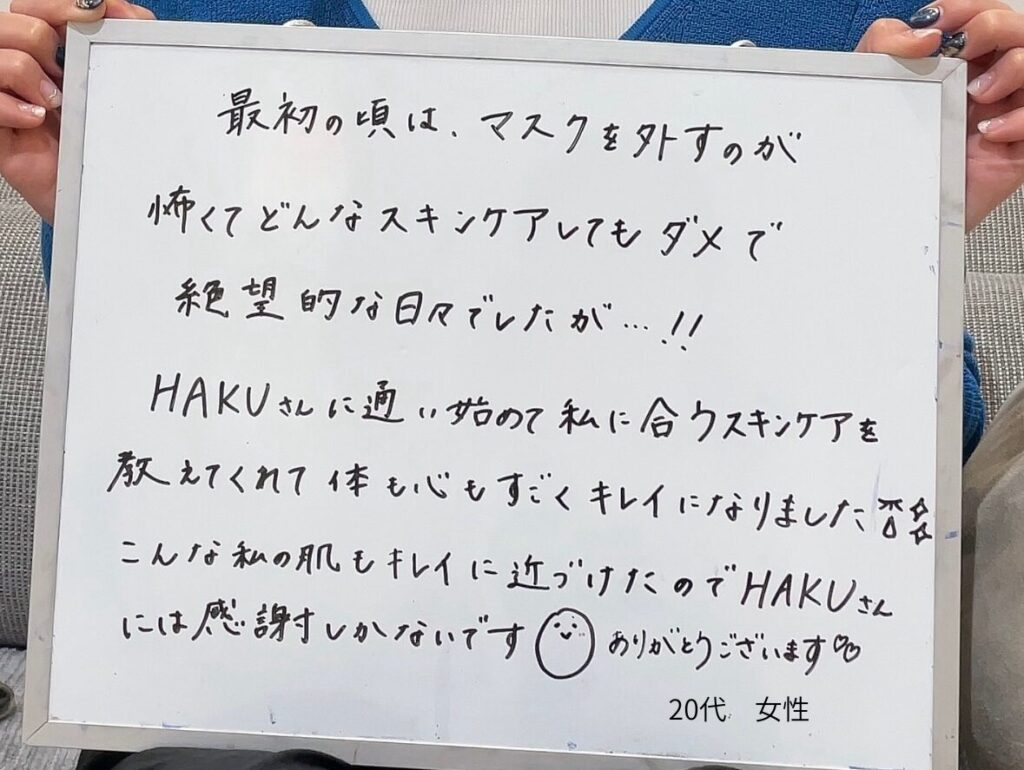 最初の頃は、マスクを外すのが
怖くてどんなスキンケアしてもダメで
絶望的な日々でしたが…!!
HAKUさんに通い始めて私に合うスキンケアを
教えてくれて体も心もすごくキレイになりました
こんな私の肌もキレイに近づけたのでHAKUさん
には感謝しかないです ありがとうございます♡♡
20代 女性